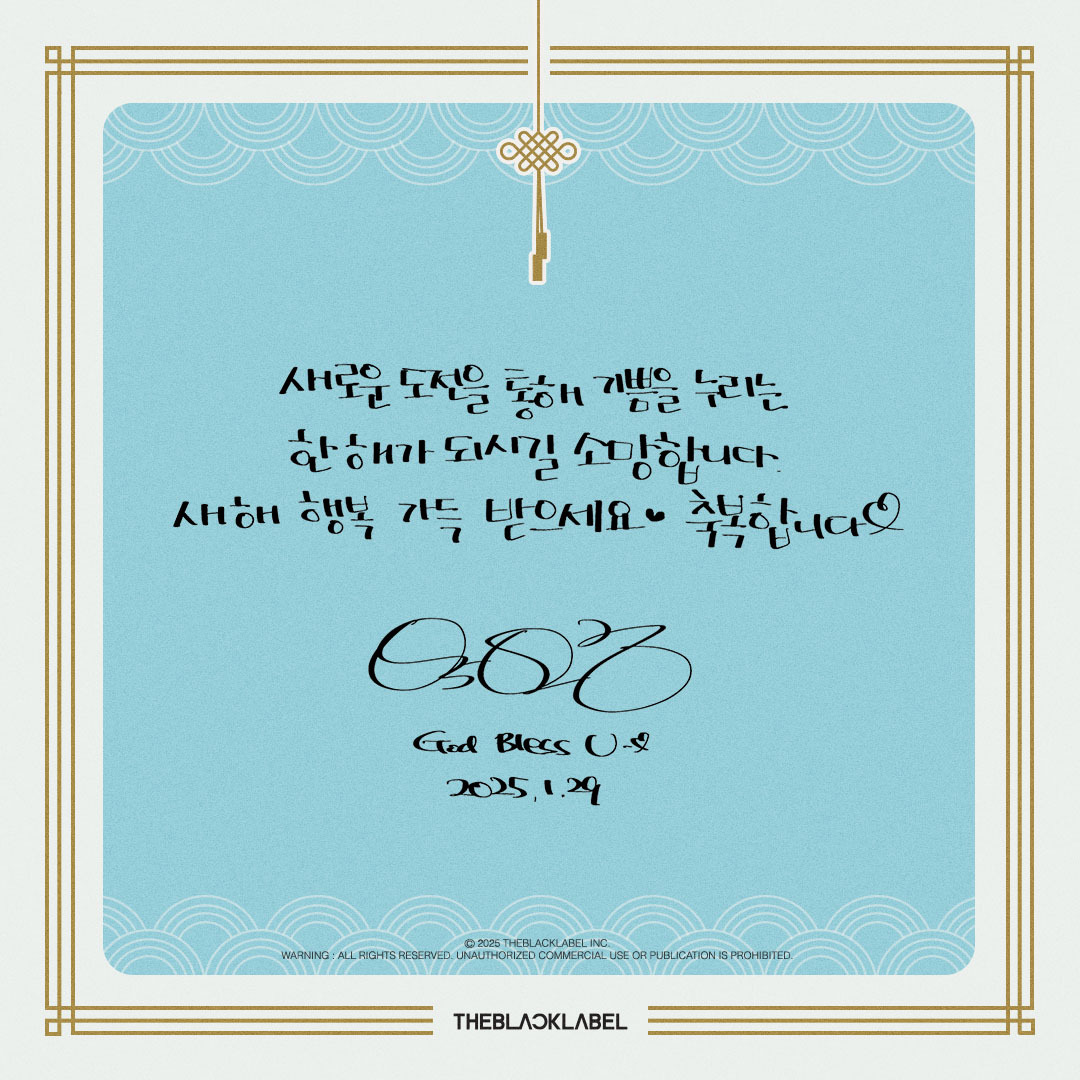 새로운 도전을 통해 기쁨을 누리는
한 해가 되시길 소망합니다.
새해 행복 가득 받으세요♥ 축복합니다♡
God Bless U ~♡
2025. 1. 29
© 2025 THEBLACKLABEL INC.
WARNING : ALL RIGHTS RESERVED. UNAUTHORIZED COMMERCIAL USE OR PUBLICATION IS PROHIBITED.
THEBLACKLABEL